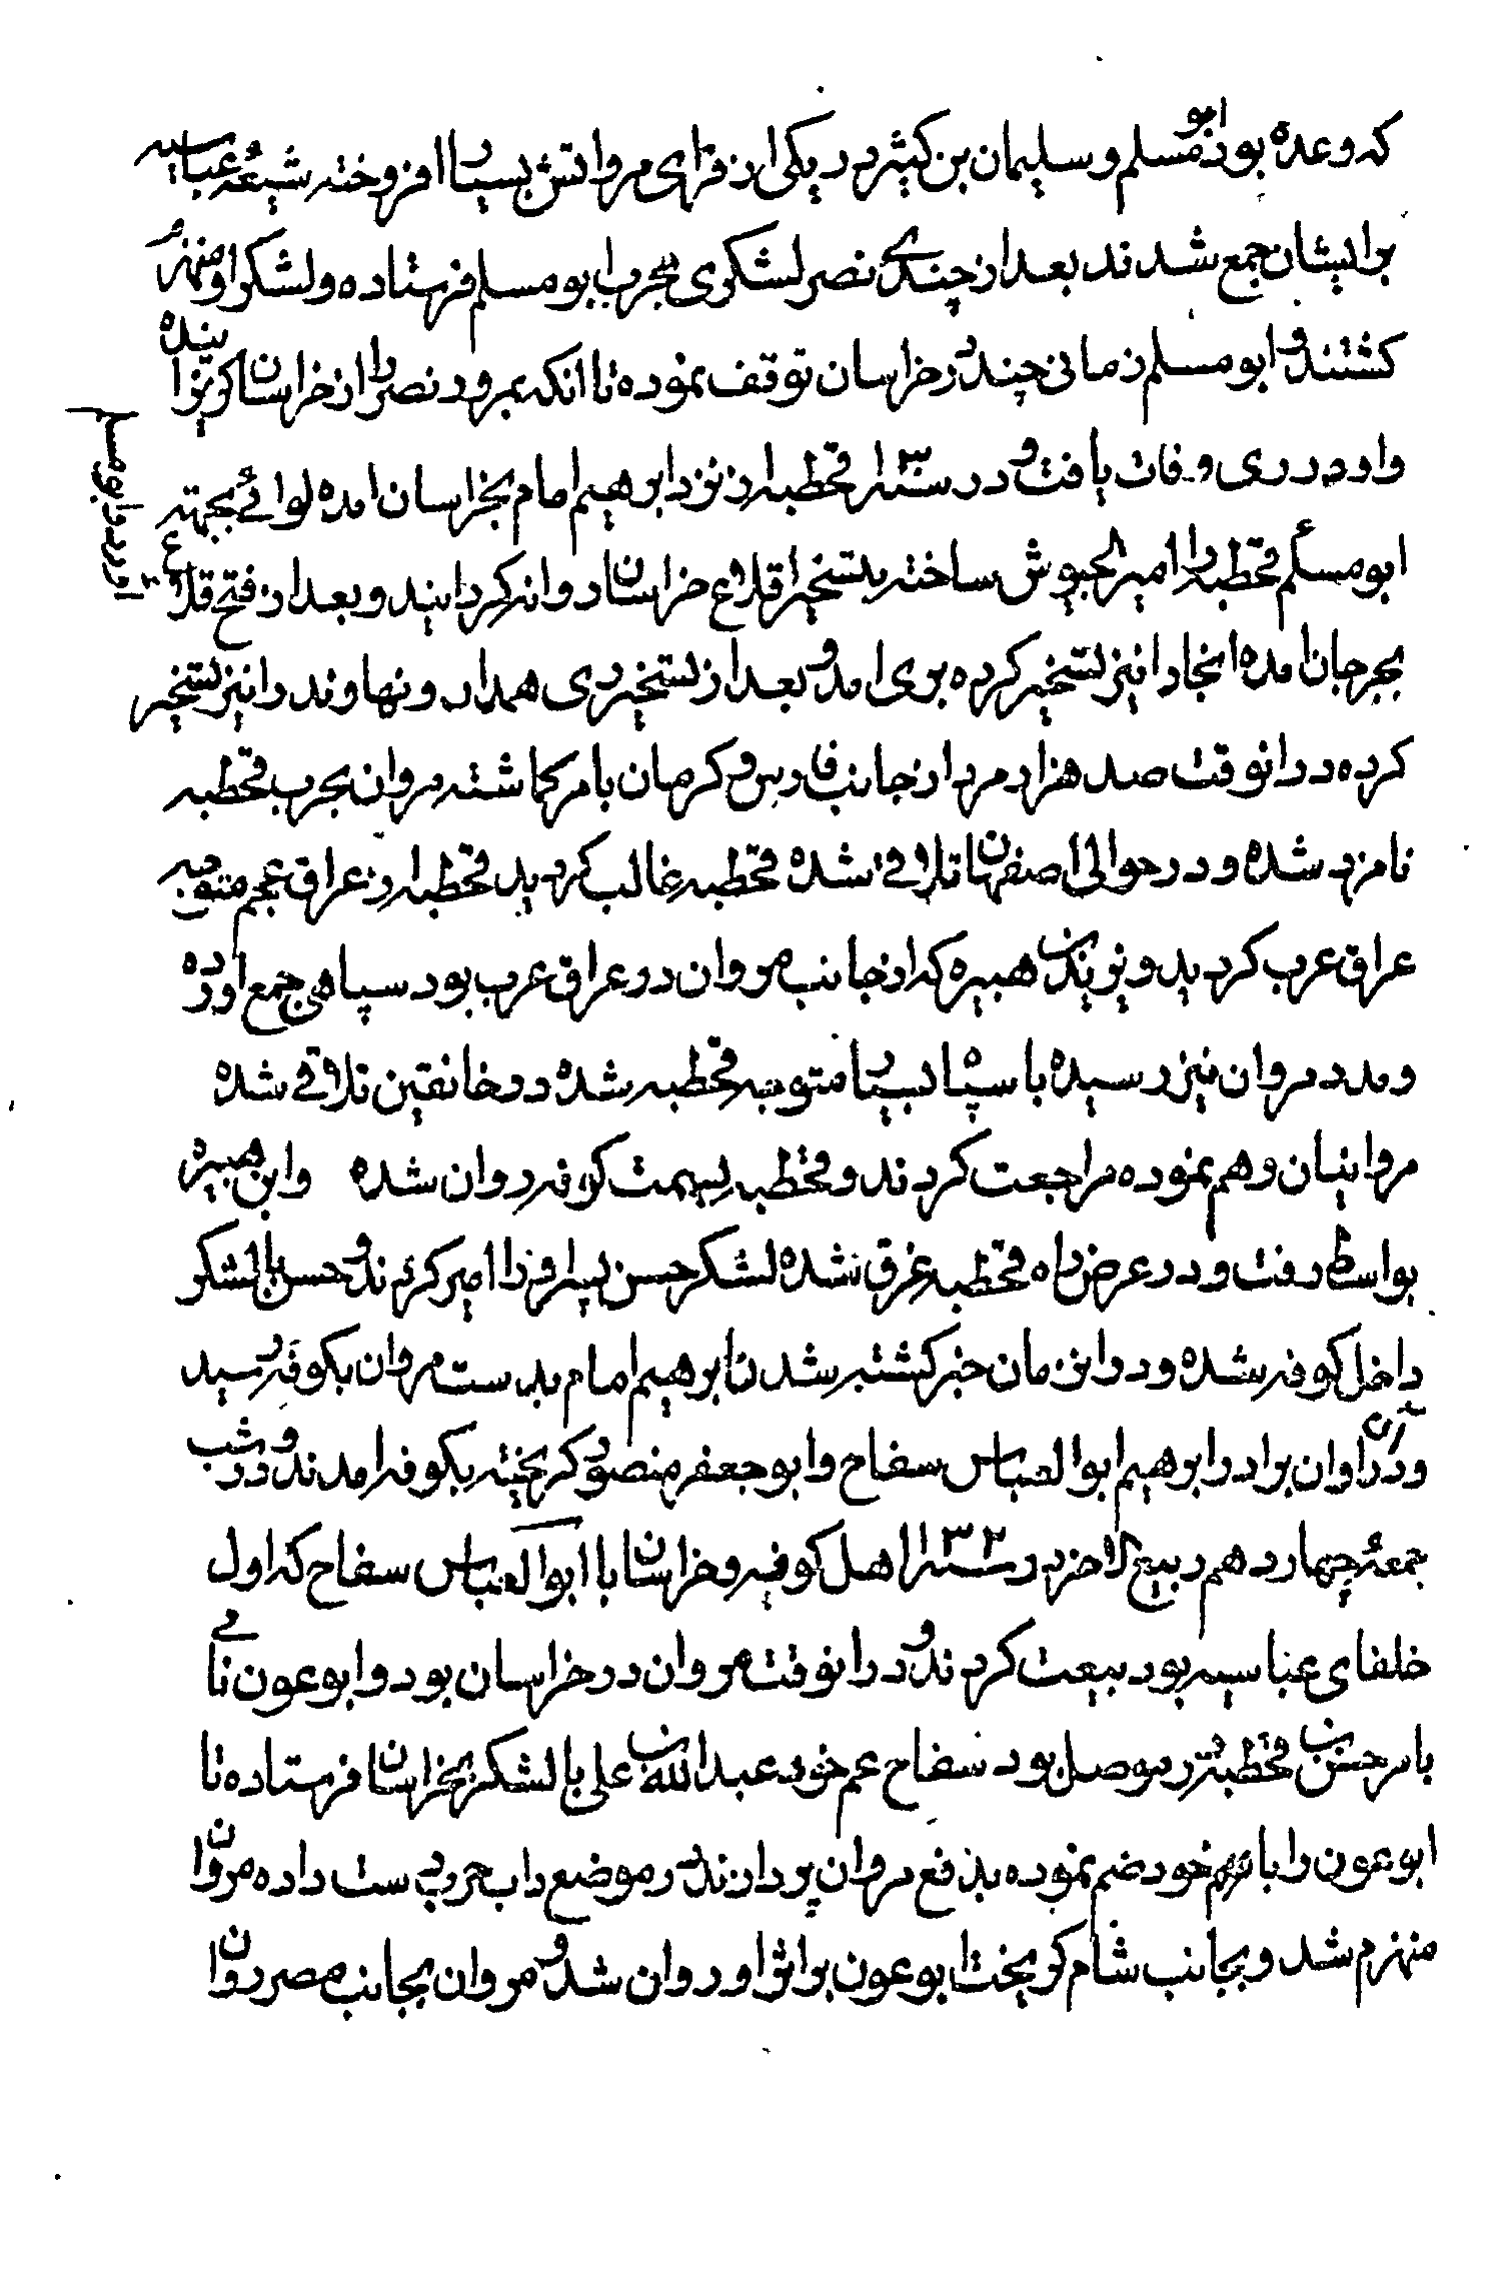 که وعده بود ابو مسلم و سلیمان بن کثیر در یکی از قرای مرو اتش بسیار افروخته شیعهٔ عباسیه
بر ایشان جمع شدند بعد از چندی نصر لشکری بحرب ابو مسلم فرستاده و لشکر او منهزم
کشتند و ابو مسلم زمانی چند در خراسان توقف نموده تا انکه بمرور نصر را از خراسان کریزانیده
و او در ری وفات یافت و در سنه ۱۳۰ قحطبه از نزد ابرهیم امام بخراسان امده لوائی بجهته
اورد و ابو مسلم
ابو مسلم قحطبه را امیر الجیوش ساخته بتسخیر قلاع خراسان روانه کردانید و بعد از فتح قلاع
بجرجان امده انجا را نیز تسخیر کرده بری امد و بعد از تسخیر ری همدان و نهاوند را نیز تسخیر
کرده در انوقت صد هزار مرد از جانب فارس و کرمان بامر کماشته مروان بحرب قحطبه
نامزد شده و در حوالی اصفهان تلاقی شده قحطبه غالب کردید قحطبه از عراق عجم متوجه
عراق عرب کردید و یزید بن هبیره که از جانب مروان در عراق عرب بود سپاهی جمع اورده
و مدد مروان نیز رسیده با سپاه بسیار متوجه قحطبه شده در خانقین تلاقی شده
مروانیان وهم نموده مراجعت کردند و قحطبه بسمت کوفه روان شده و ابن هبیره
بواسط رفت و در عرض راه قحطبه غرق شده لشکر حسن پسر او را امیر کردند و حسن با لشکر
داخل کوفه شده و در ان زمان خبر کشته شدن ابرهیم امام بدست مروان بکوفه رسید
و در آن اوان برادر ابرهیم ابوالعباس سفاح و ابو جعفر منصور کریخته بکوفه امدند و در شب
جمعهٔ چهاردهم ربیع الاخر در سنه ۱۳۲ اهل کوفه و خراسان با ابوالعباس سفاح که اول
خلفای عباسیه بود بیعت کردند و در انوقت مروان در خراسان بود و ابو عون نامی
بامر حسن بن قحطبه در موصل بود سفاح عم خود عبدالله بن علی با لشکر بخراسان فرستاده تا
ابو عون را با خود ضم نموده بدفع مروان پردازند در موضع داب حرب دست داده مروان
منهزم شد و بجانب شام کریخت ابو عون بر اثر او روان شد و مروان بجانب مصر روان